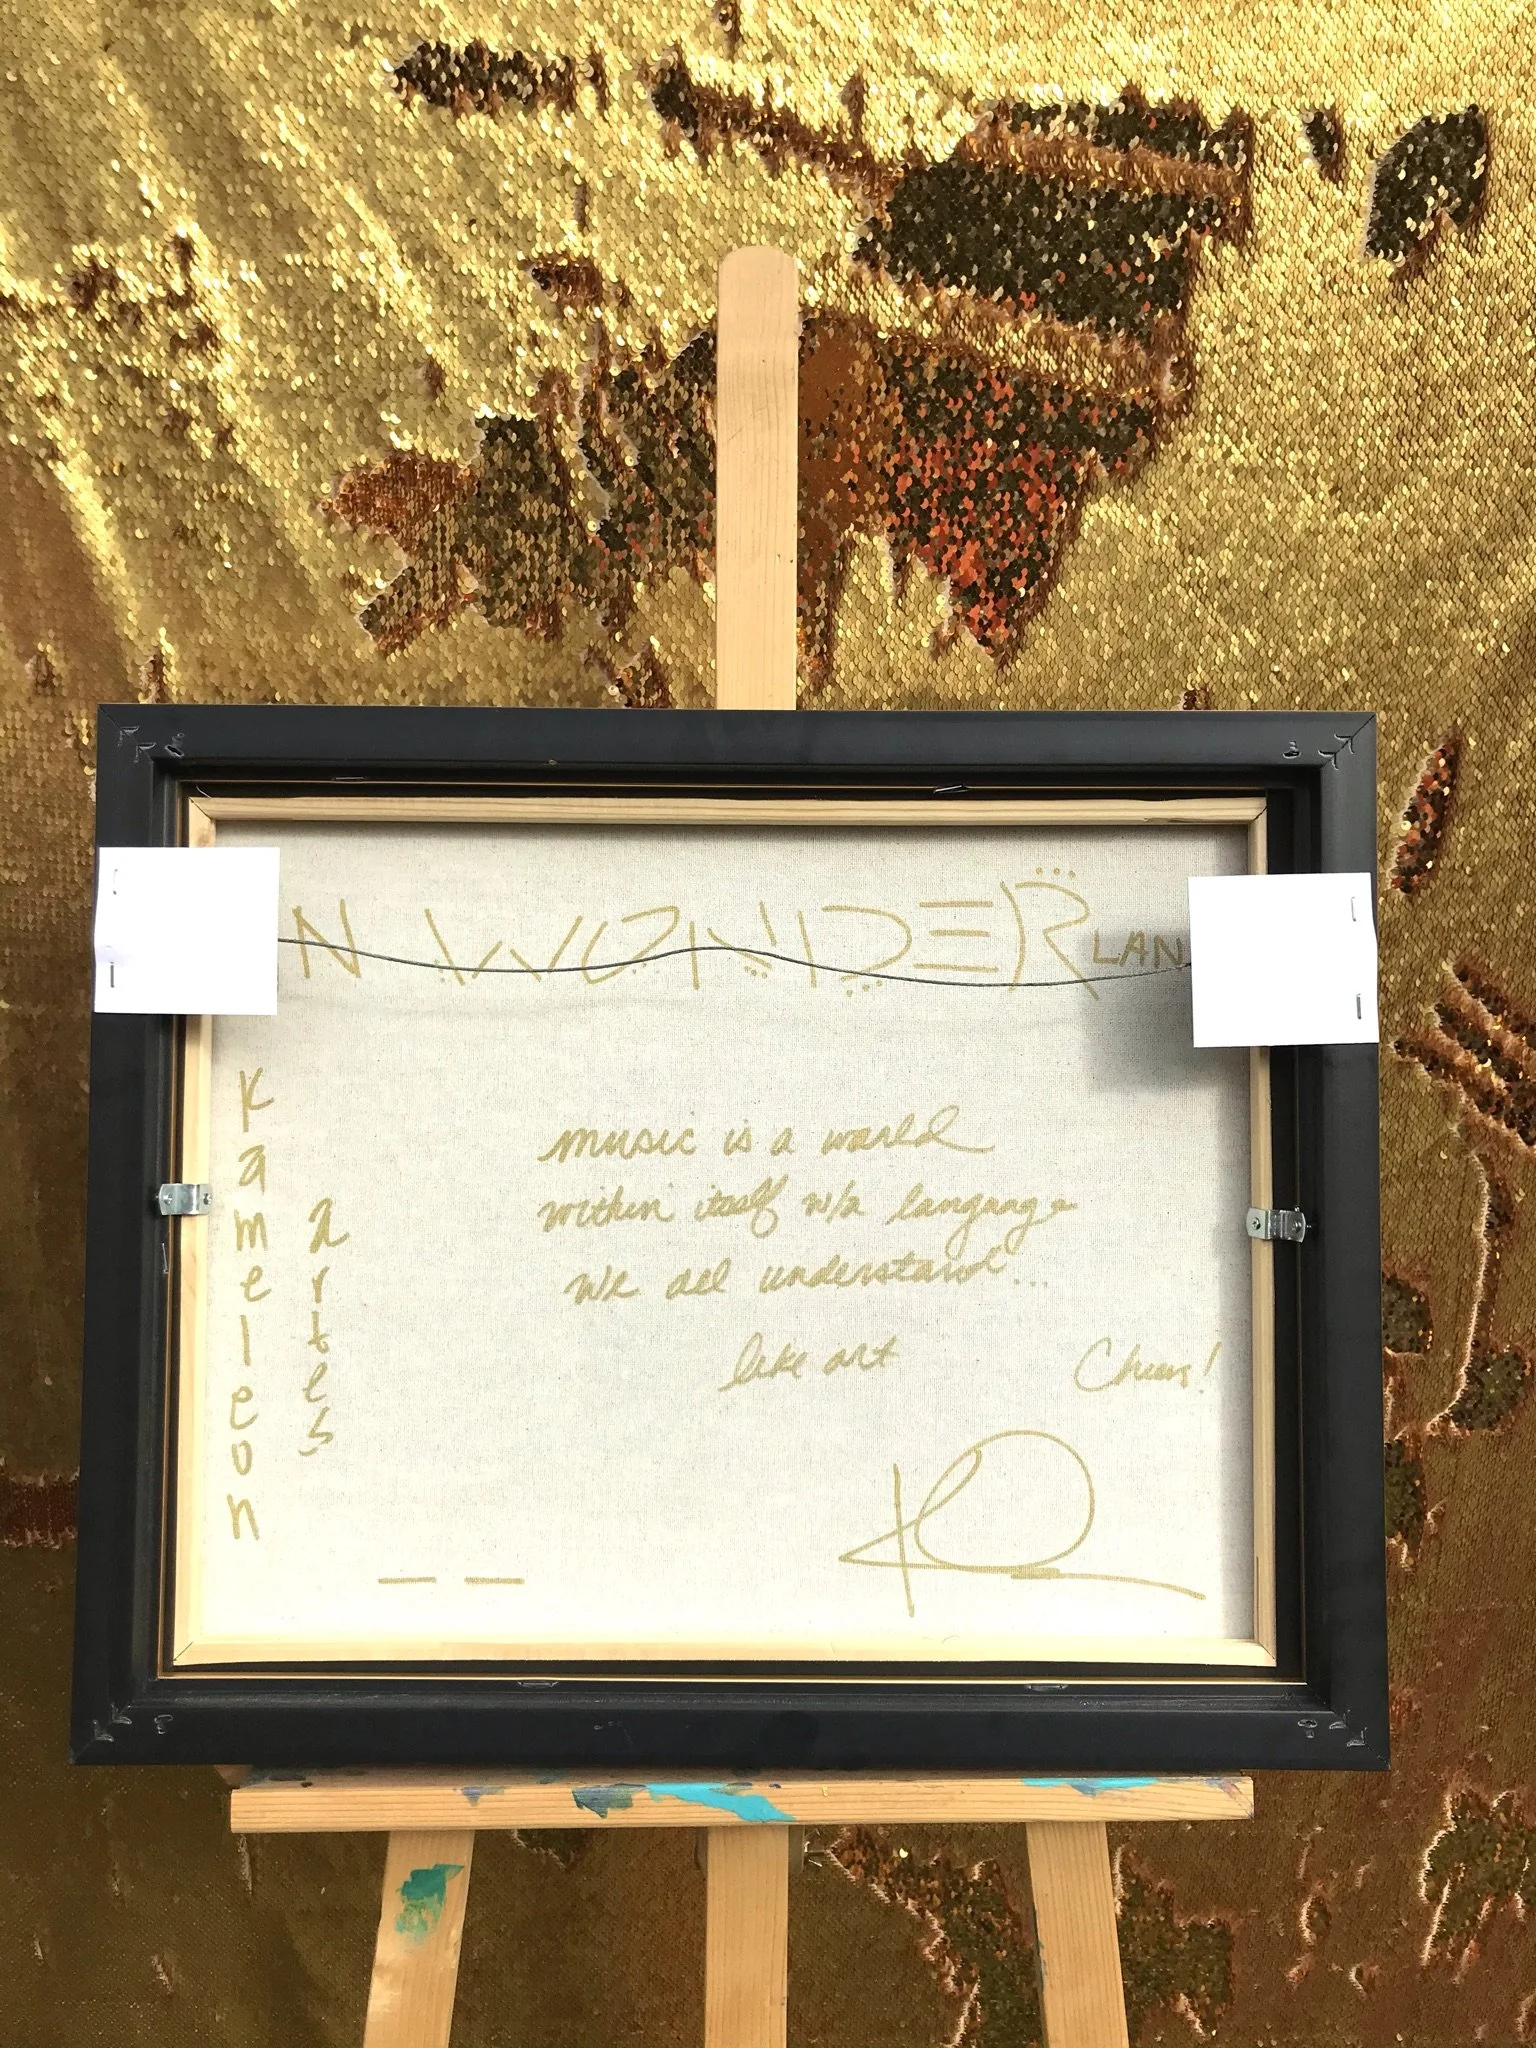 N WONDER LAN
Kameleon
artes
music is a world
within itself w/a language
we all understand...
like art
Cheers!